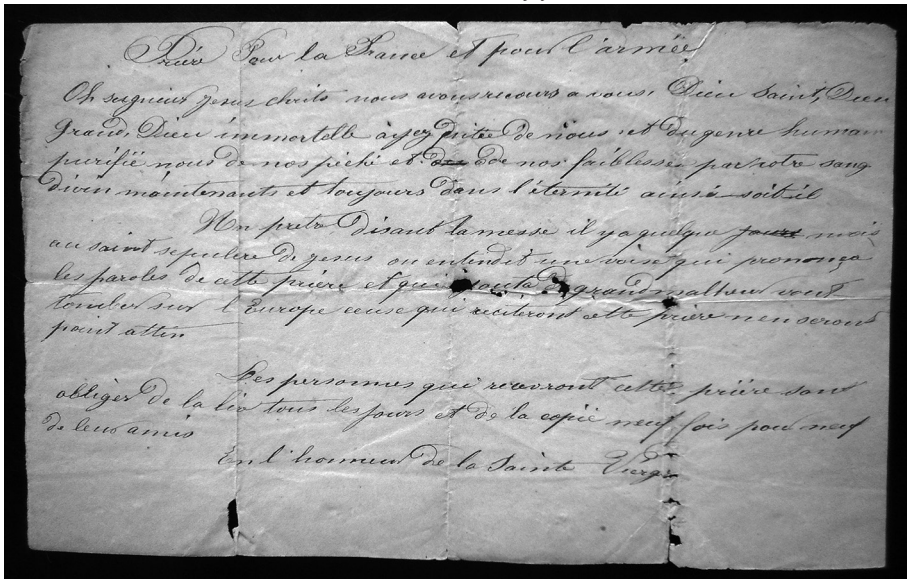 Prière Pour la France et pour l'armée
Oh seigneur jesus christs nous avons recours a vous, Dieu Saint, Dieu
grand, Dieu immortelle ayez pitie de nous et du genre humain
purifié nous de nos péché et de nos faiblesses par votre sang
divin maintenants et toujours dans l'éternité ainsé soit il
Un pretre disant la messe il y a quelque jours mois
au saint sepulcre de jesus on entendit une voise qui prononça
les paroles de cette prière et qui ajouta de grand malheur vont
tomber sur l'Europe ceuse qui réciteront cette prière nen seront
point attin
Les personnes qui recevront cette prière sont
obliger de la lire tous les jours et de la copié neuf fois pour neuf
de leur amis
En l'honneur de la Sainte Vierge